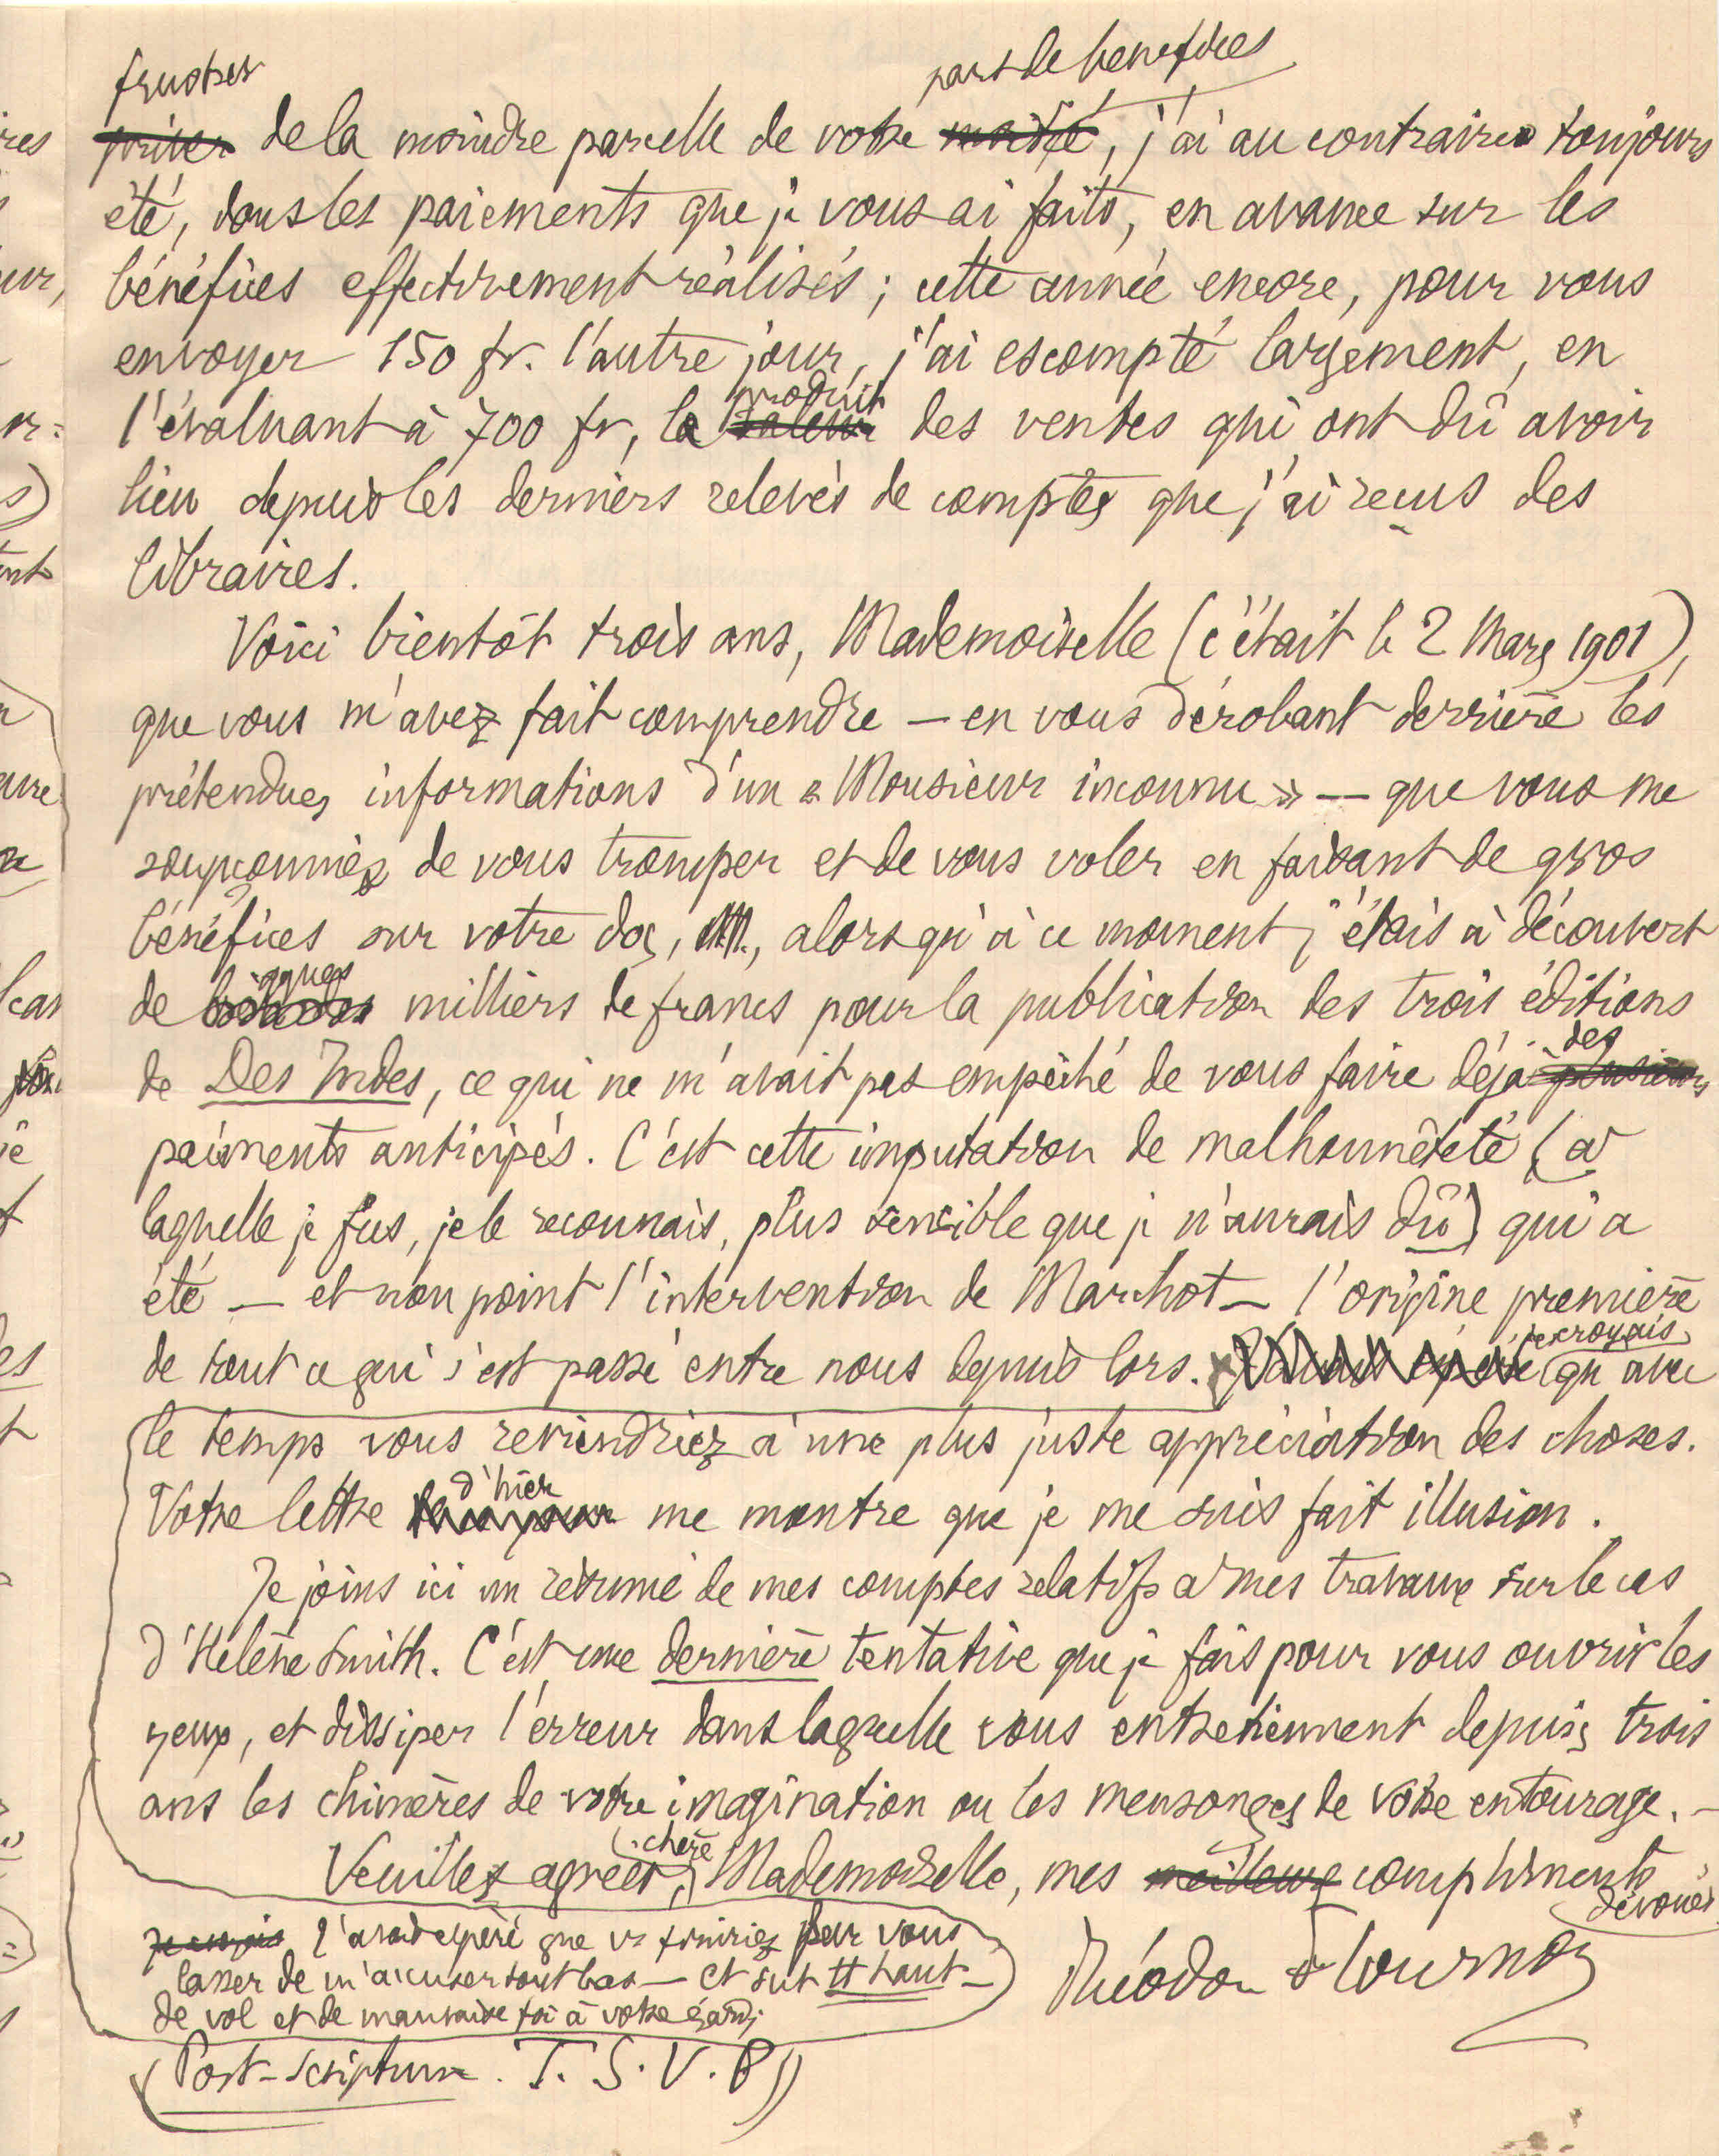 frustrer
part de bénéfices
priver de la moindre parcelle de votre moitié, j'ai au contraire toujours
été, dans les paiements que je vous ai faits, en avance sur les
bénéfices effectivement réalisés ; cette année encore, pour vous
envoyer 150 fr. l'autre jour, j'ai escompté largement, en
produit
l'évaluant à 700 fr, la valeur des ventes qui ont dû avoir
lieu depuis les derniers relevés de comptes que j'ai reçus des
libraires.
Voici bientôt trois ans, Mademoiselle (c'était le 2 Mars 1901),
que vous m'avez fait comprendre — en vous dérobant derrière les
prétendues informations d'un « Monsieur inconnu » — que vous me
soupçonniez de vous tromper et de vous voler en faisant de gros
bénéfices sur votre dos, alors qu'à ce moment j'étais à découvert
de milliers de francs pour la publication des trois éditions
des
de Des Indes, ce qui ne m'avait pas empêché de vous faire déjà plusieurs
paiments anticipés. C'est cette imputation de malhonnêteté (à
laquelle je fus, je le reconnais, plus sensible que je n'aurais dû) qui a
été — et non point l'intervention de Marchot — l'origine première
je croyais
de tout ce qui s'est passé entre nous depuis lors. J'avais espéré qu'avec
le temps vous reviendriez à une plus juste appréciation des choses.
d'hier
Votre lettre me montre que je me suis fait illusion.
Je joins ici un résumé de mes comptes relatifs à mes travaux sur le cas
d'Hélène Smith. C'est une dernière tentative que je fais pour vous ouvrir les
yeux, et dissiper l'erreur dans laquelle vous entretiennent depuis trois
ans les chimères de votre imagination ou les mensonges de votre entourage. —
chère
Veuillez agréer, Mademoiselle, mes meilleurs compliments
dévoués
Je croyais J'avais espéré que vs finiriez par vous
lasser de m'accuser tout bas — et sut tt haut —
de vol et de mauvaise foi à votre égard;
Théodore Flournoy
(Post-scriptum. T. S. V. P.)